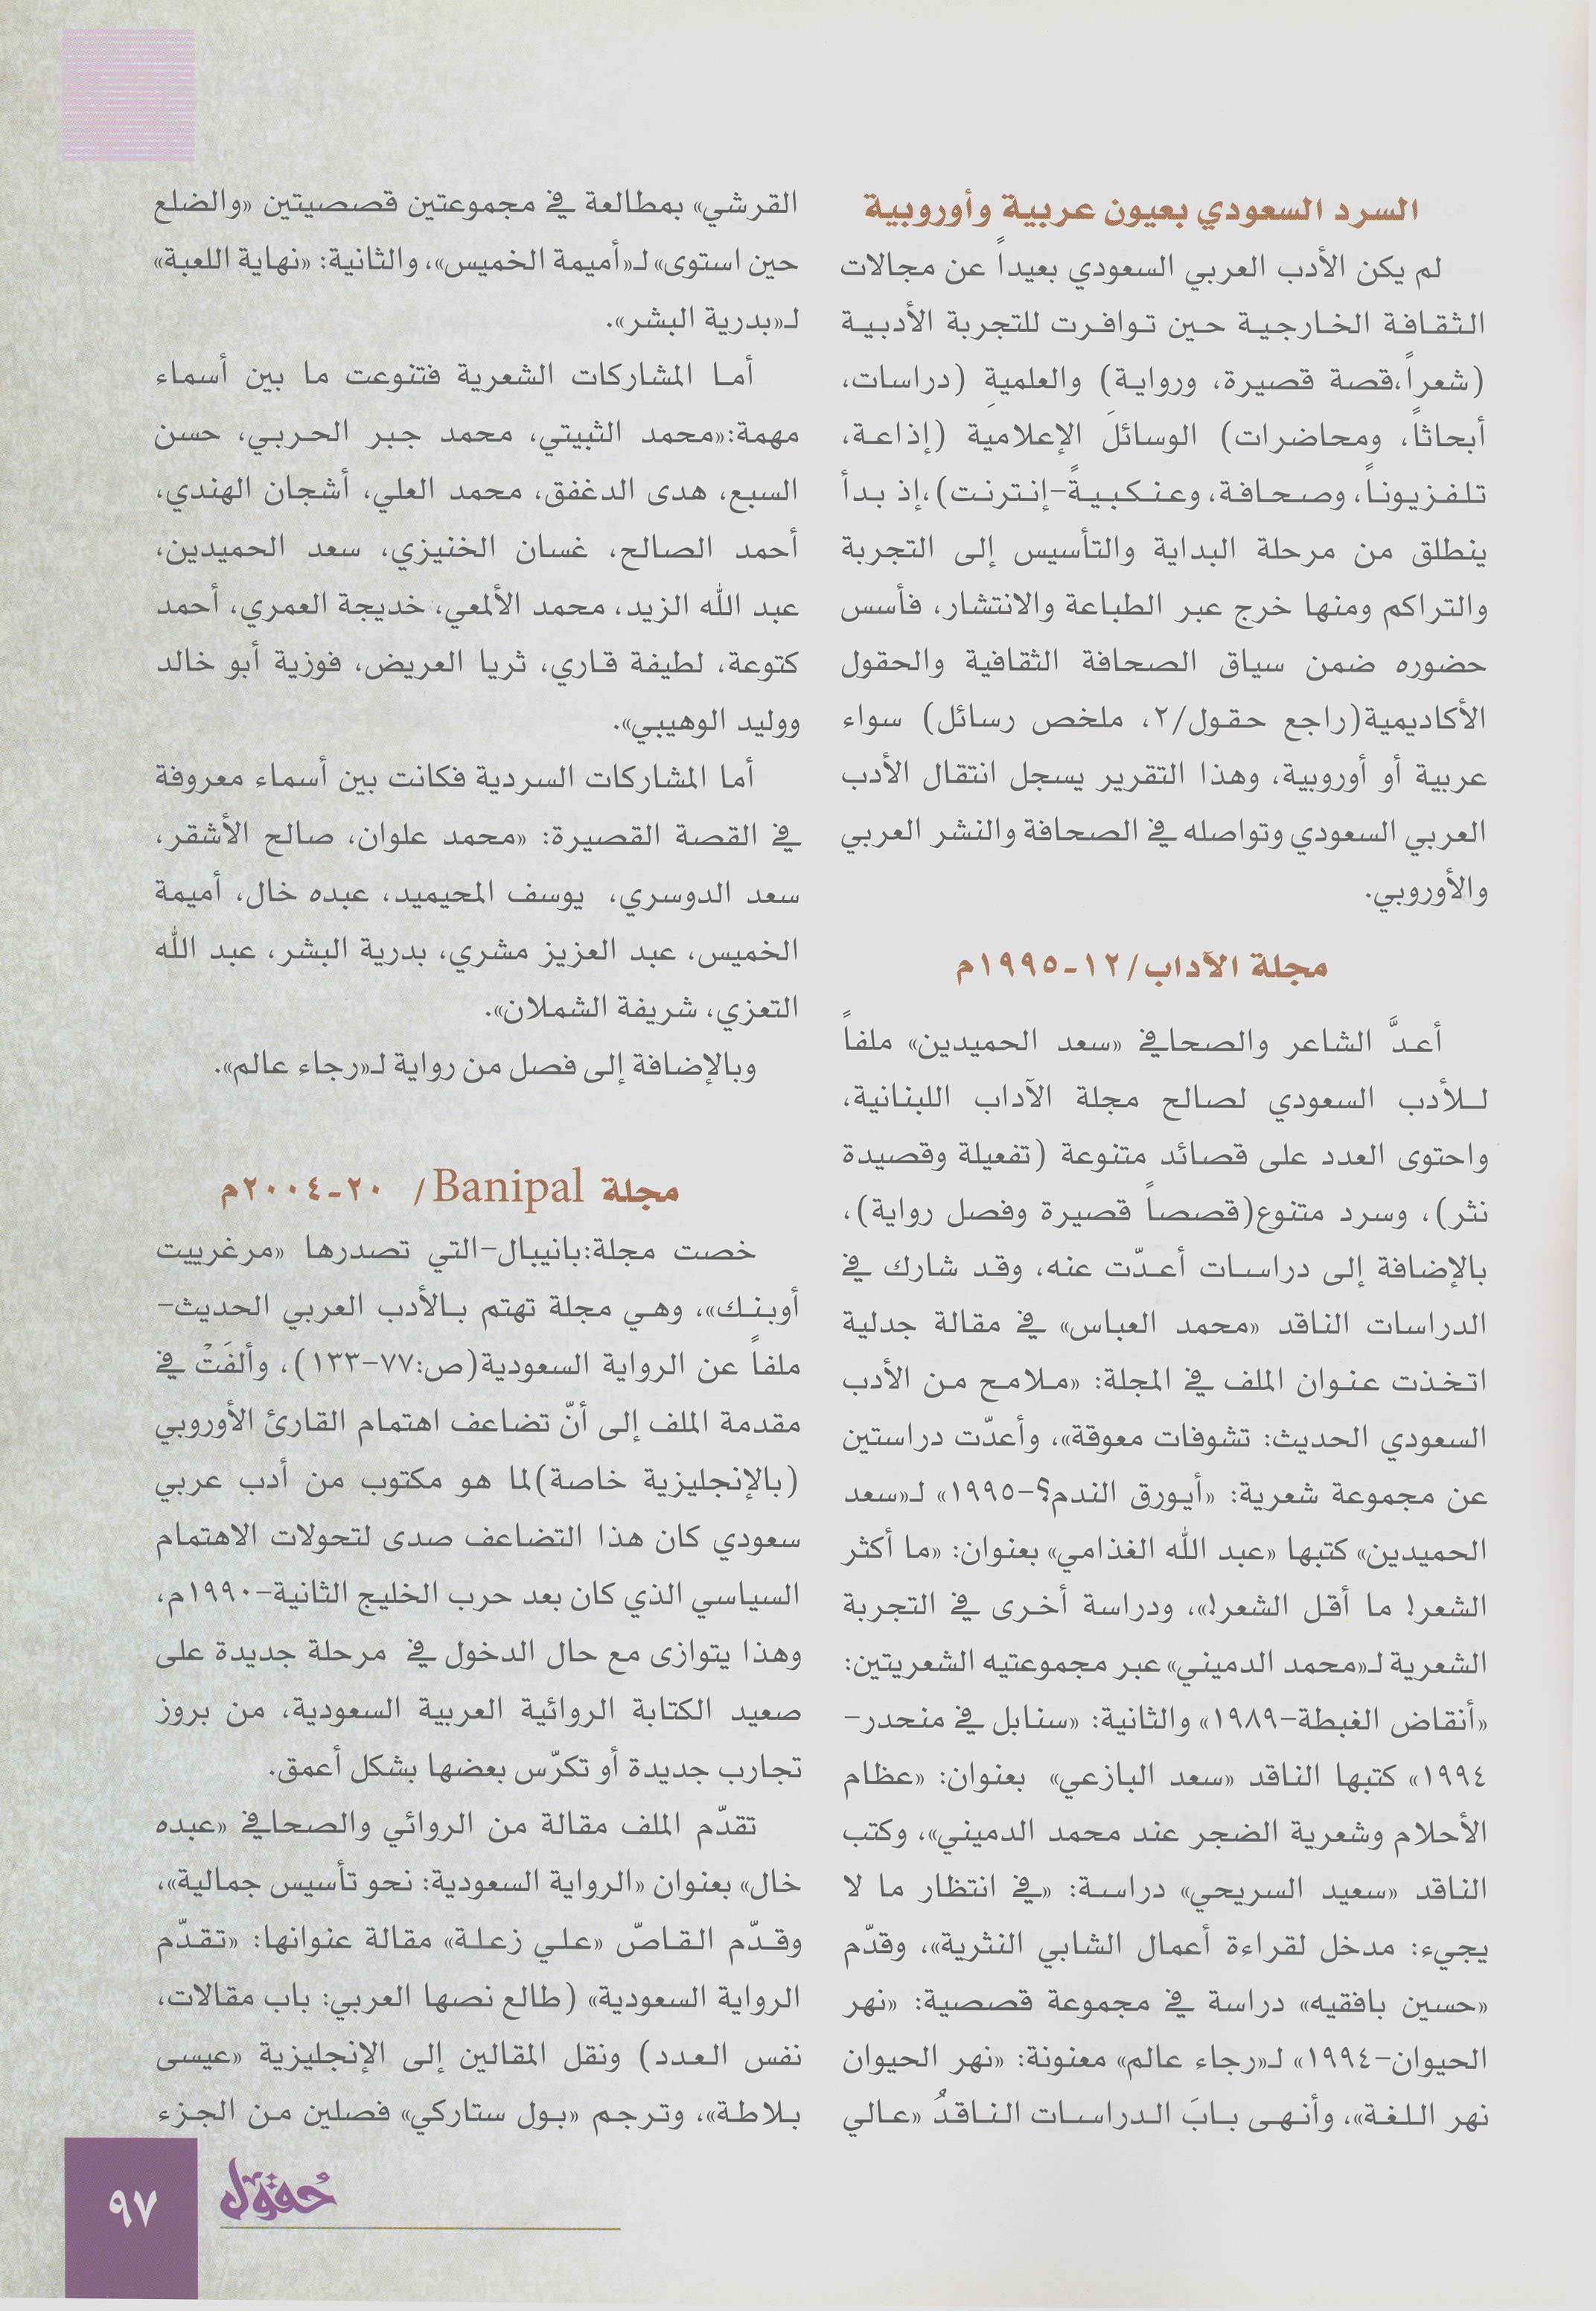 السرد السعودي بعيون عربية وأوروبية
لم يكن الأدب العربي السعودي بعيداً عن مجالات
الثقافة الخارجية حين توافرت للتجربة الأدبية
(شعراً،قصة قصيرة، ورواية) والعلميةِ (دراسات،
أبحاثاً، ومحاضرات) الوسائلَ الإعلامية (إذاعة،
تلفزيوناً، وصحافة، وعنكبيةً-إنترنت)،إذ بدأ
ينطلق من مرحلة البداية والتأسيس إلى التجربة
والتراكم ومنها خرج عبر الطباعة والانتشار، فأسس
حضوره ضمن سياق الصحافة الثقافية والحقول
الأكاديمية(راجع حقول/٢، ملخص رسائل) سواء
عربية أو أوروبية، وهذا التقرير يسجل انتقال الأدب
العربي السعودي وتواصله في الصحافة والنشر العربي
والأوروبي.
مجلة الآداب/١٢-١٩٩٥م
أعدَّ الشاعر والصحافي «سعد الحميدين» ملفاً
للأدب السعودي لصالح مجلة الآداب اللبنانية،
واحتوى العدد على قصائد متنوعة (تفعيلة وقصيدة
نثر)، وسرد متنوع(قصصاً قصيرة وفصل رواية)،
بالإضافة إلى دراسات أعدّت عنه، وقد شارك في
الدراسات الناقد «محمد العباس» في مقالة جدلية
اتخذت عنوان الملف في المجلة: «ملامح من الأدب
السعودي الحديث: تشوفات معوقة»، وأعدّت دراستين
عن مجموعة شعرية: «أيورق الندم؟-١٩٩٥» لـ«سعد
الحميدين» كتبها «عبد الله الغذامي» بعنوان: «ما أكثر
الشعر! ما أقل الشعر!»، ودراسة أخرى في التجربة
الشعرية لـ«محمد الدميني» عبر مجموعتيه الشعريتين:
«أنقاض الغبطة-١٩٨٩» والثانية: «سنابل في منحدر-
١٩٩٤» كتبها الناقد «سعد البازعي» بعنوان: «عظام
الأحلام وشعرية الضجر عند محمد الدميني»، وكتب
الناقد «سعيد السريحي» دراسة: «في انتظار ما لا
يجيء: مدخل لقراءة أعمال الشابي النثرية»، وقدّم
«حسين بافقيه» دراسة في مجموعة قصصية: «نهر
الحيوان-١٩٩٤» لـ«رجاء عالم» معنونة: «نهر الحيوان
نهر اللغة»، وأنهى بابَ الدراسات الناقدُ «عالي
القرشي» بمطالعة في مجموعتين قصصيتين «والضلع
حين استوى» لـ«أميمة الخميس»، والثانية: «نهاية اللعبة»
لـ«بدرية البشر».
أما المشاركات الشعرية فتنوعت ما بين أسماء
مهمة:«محمد الثبيتي، محمد جبر الحربي، حسن
السبع، هدى الدغفق، محمد العلي، أشجان الهندي،
أحمد الصالح، غسان الخنيزي، سعد الحميدين،
عبد الله الزيد، محمد الألمعي، خديجة العمري، أحمد
كتوعة، لطيفة قاري، ثريا العريض، فوزية أبو خالد
ووليد الوهيبي».
أما المشاركات السردية فكانت بين أسماء معروفة
في القصة القصيرة: «محمد علوان، صالح الأشقر،
سعد الدوسري، يوسف المحيميد، عبده خال، أميمة
الخميس، عبد العزيز مشري، بدرية البشر، عبد الله
التعزي، شريفة الشملان».
وبالإضافة إلى فصل من رواية لـ«رجاء عالم».
مجلة Banipal/ ٢٠-٢٠٠٤م
خصت مجلة:بانيبال-التي تصدرها «مرغرييت
أوبنك»، وهي مجلة تهتم بالأدب العربي الحديث-
ملفاً عن الرواية السعودية(ص:٧٧-١٣٣)، وألفَتْ في
مقدمة الملف إلى أنّ تضاعف اهتمام القارئ الأوروبي
(بالإنجليزية خاصة)لما هو مكتوب من أدب عربي
سعودي كان هذا التضاعف صدى لتحولات الاهتمام
السياسي الذي كان بعد حرب الخليج الثانية-١٩٩٠م،
وهذا يتوازى مع حال الدخول في مرحلة جديدة على
صعيد الكتابة الروائية العربية السعودية، من بروز
تجارب جديدة أو تكرّس بعضها بشكل أعمق.
تقدّم الملف مقالة من الروائي والصحافي «عبده
خال» بعنوان «الرواية السعودية: نحو تأسيس جمالية»،
وقدّم القاصّ «علي زعلة» مقالة عنوانها: «تقدّم
الرواية السعودية» (طالع نصها العربي: باب مقالات،
نفس العدد) ونقل المقالين إلى الإنجليزية «عيسى
بلاطة»، وترجم «بول ستاركي» فصلين من الجزء
حُقول
٩٧